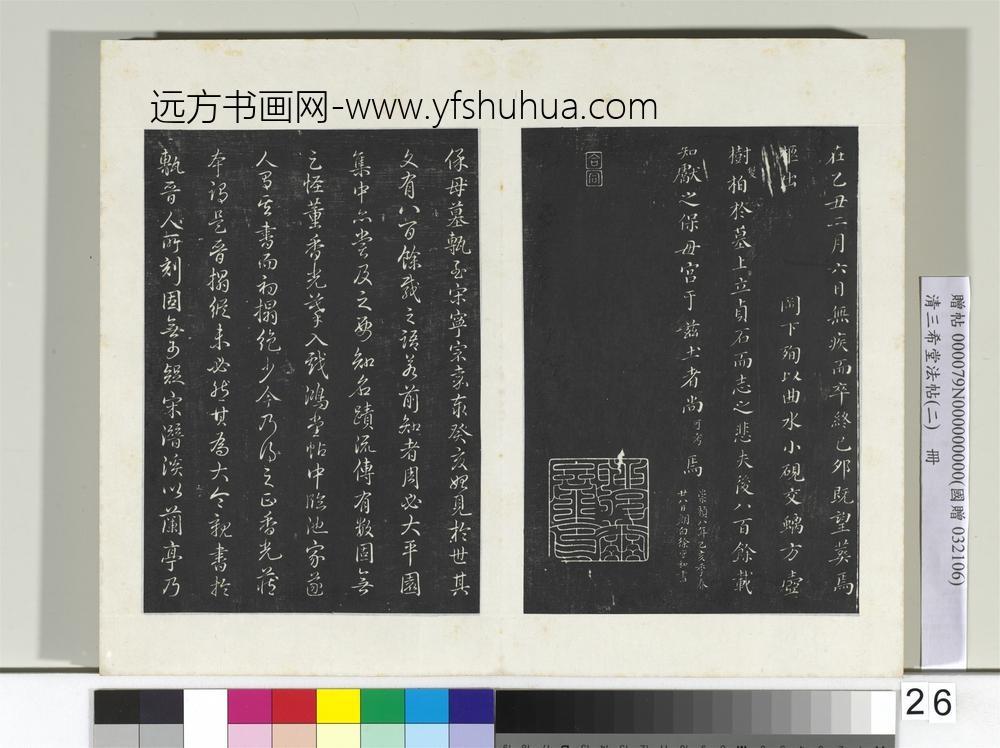 远方书画网-www.yfshuhua.com
在乙丑二月六日無疾而卒終已夘既望葬焉
闕下殉以曲水小硯交螭方壺
樹柏於墓上立貞石而志之悲夫後八百餘載
知獻之保母宫于兹土者尚可考焉
崇禎八年乙亥季春
廿八日
書
合同
保母墓甎至宋寧宗嘉泰癸亥始見於世其
文有八百餘載之語若前知者周必大平園
集中亦嘗及之要知名蹟流傳有數固無
乞怪董香光摹入戲鴻堂帖中臨池家遂
人習其書而初搨絶少今乃得之正香光舊
本詢是晋搨縱未必然其為大令親書於
甎晉人所刻固無可疑宋潛溪以蘭亭乃
贈帖 000079N000000000(國贈 032106)
清三希堂法帖(二) 冊
26